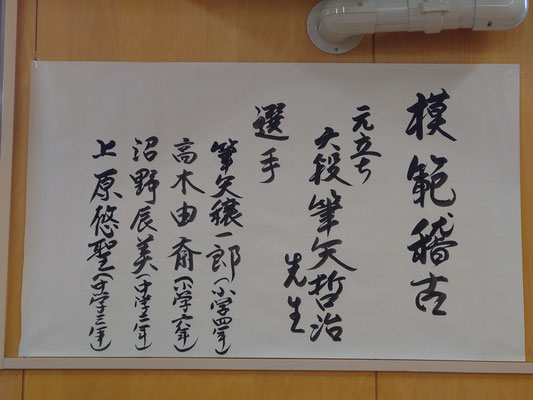 模範稽古
元立ち
六段 筆矢哲治先生
選手
筆矢穣一郎(小学四年)
高木由斎(小学六年)
沼野辰美(中学二年)
上原悠聖(中学三年)